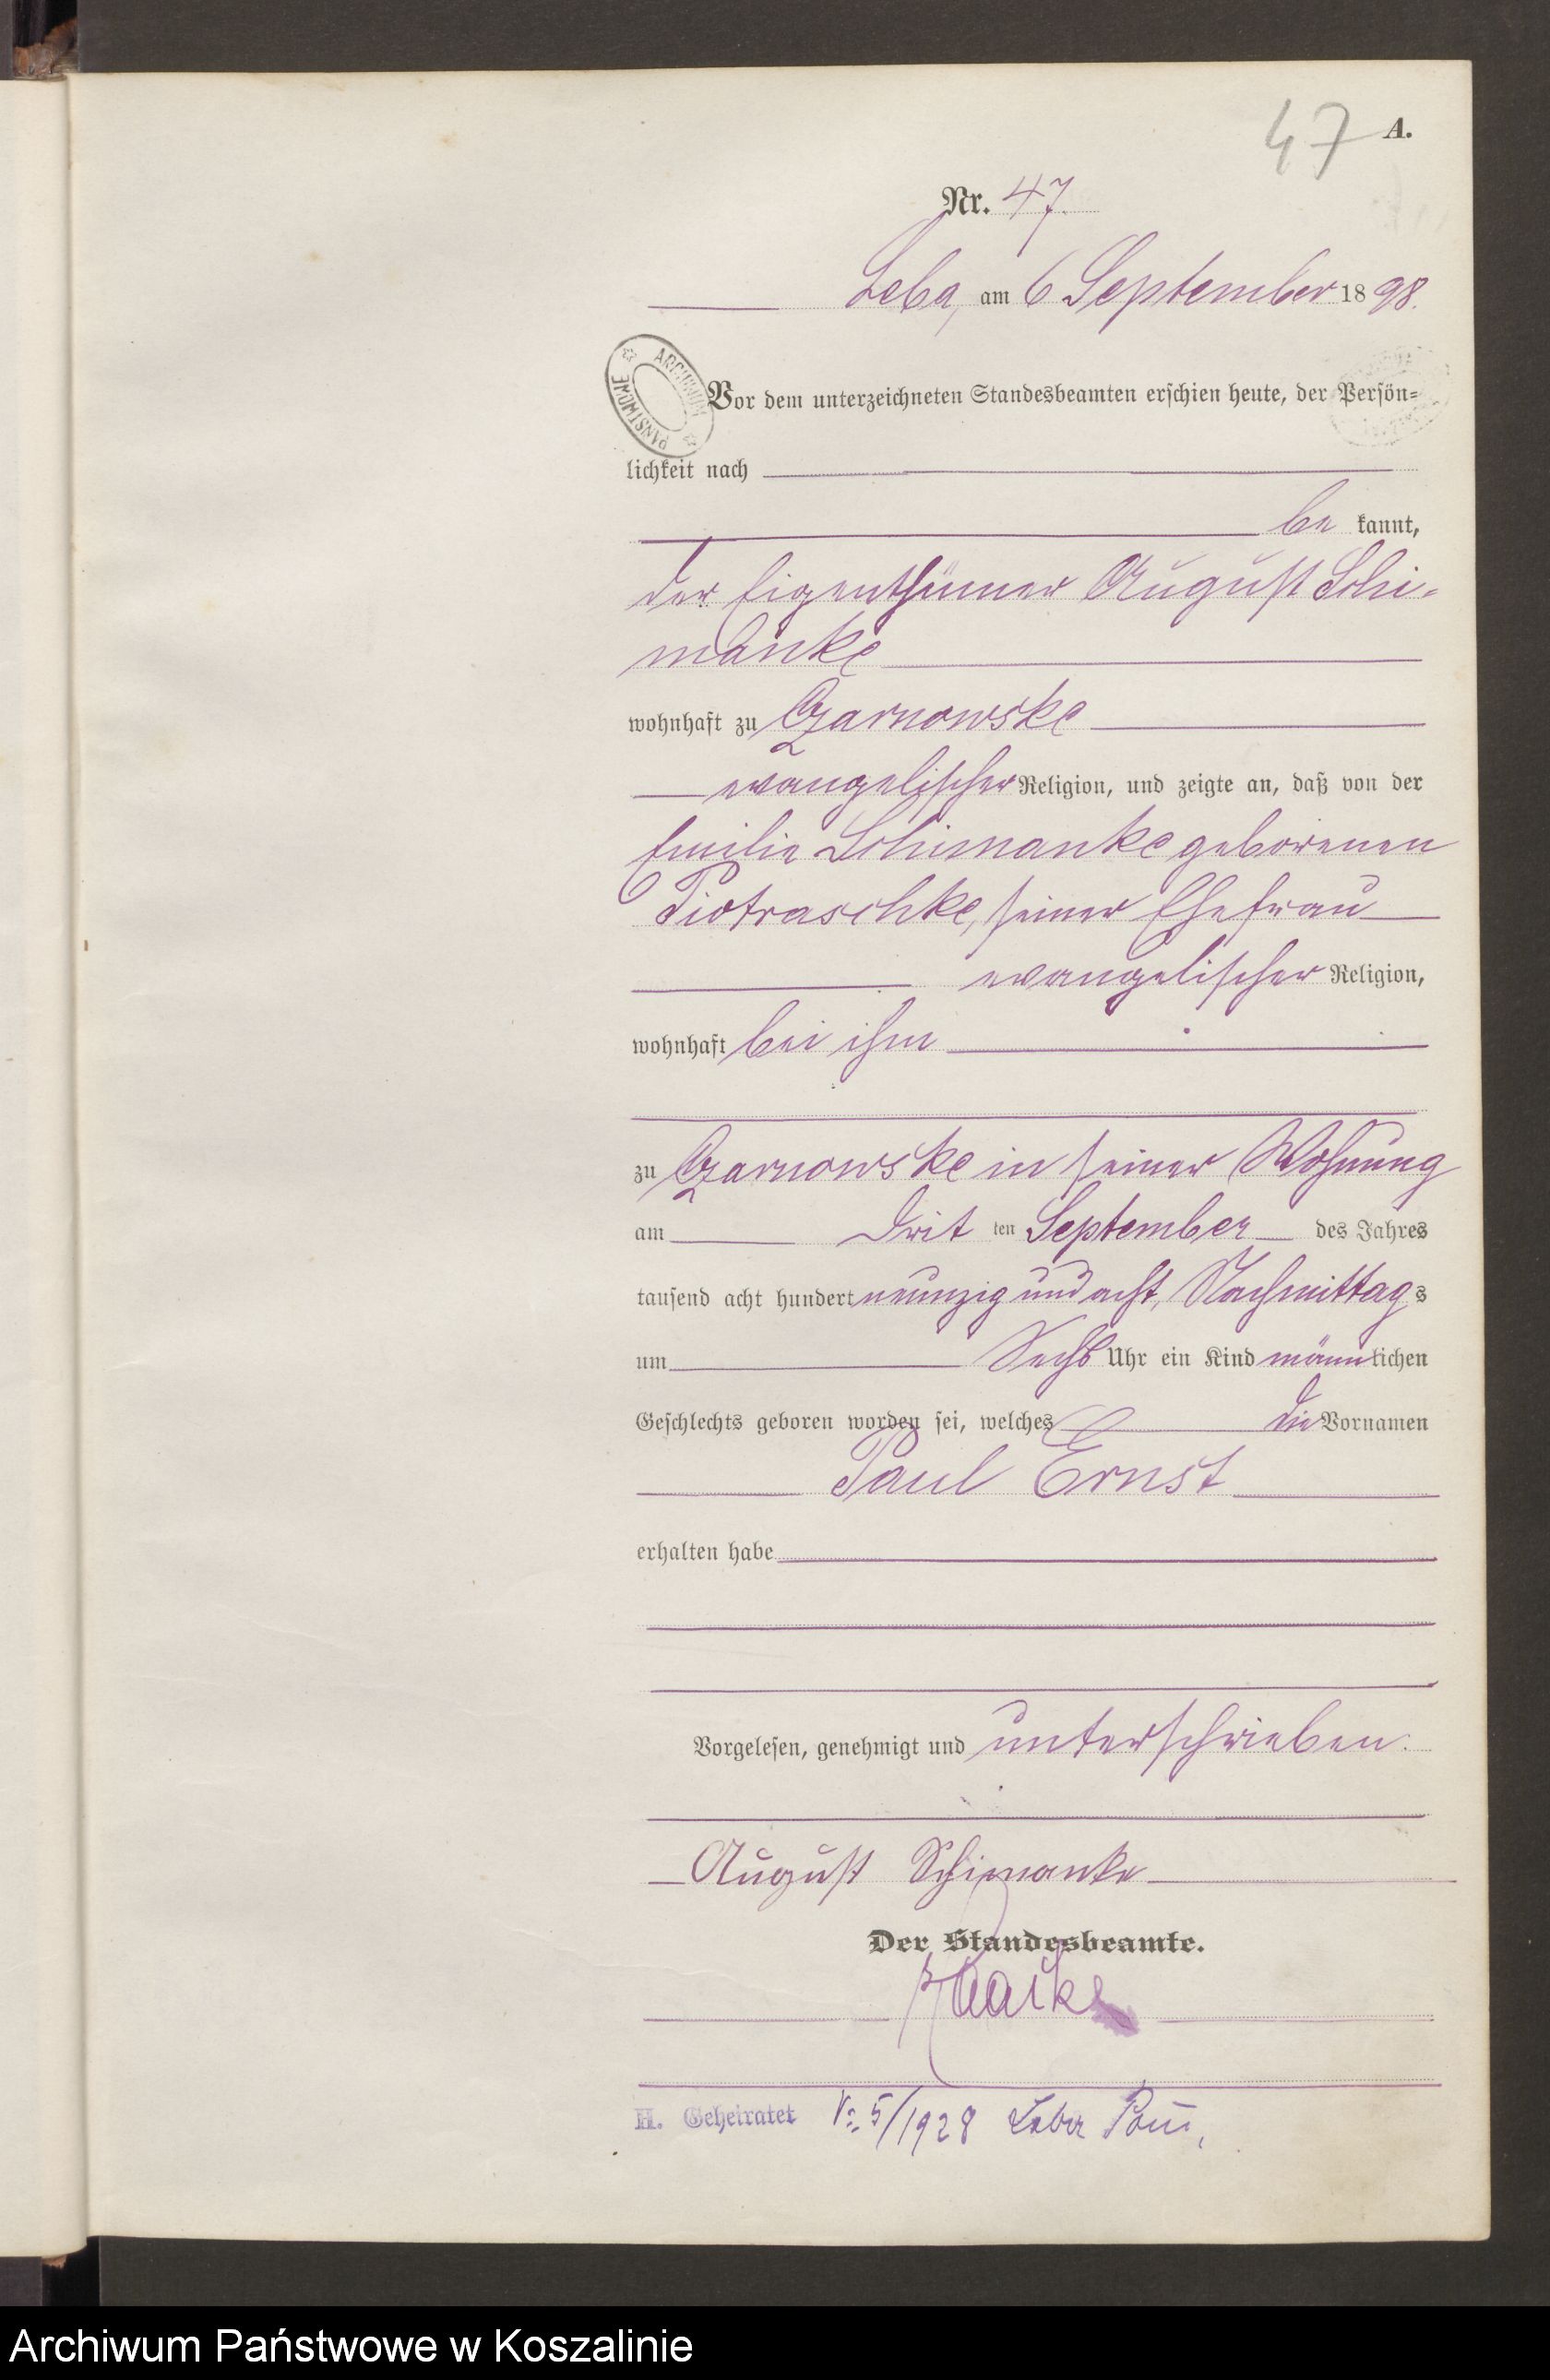 47 A.
Nr. 47.
Leba, am 6 September 1898.
ARCHIWUM PAŃSTWOWE
Vor dem unterzeichneten Standesbeamten erschien heute, der Persön=
lichkeit nach
be kannt,
der Eigenthümer August Schi-
manke
wohnhaft zu Czarnowske
evangelischer Religion, und zeigte an, daß von der
Emilie Schimanke geborenen
Piotraschke, seiner Ehefrau
evangelischer Religion,
wohnhaft bei ihm
zu Czarnowske in seiner Wohnung
am Drit ten September des Jahres
tausend acht hundert neunzig und acht, Nachmittags
um Sechs Uhr ein Kind männlichen
Geschlechts geboren worden sei, welches die Vornamen
Paul Ernst
erhalten habe
Vorgelesen, genehmigt und unterschrieben.
August Schimanke
Der Standesbeamte.
H. Geheiratet 5/1928 Leba Pom.
Archiwum Państwowe w Koszalinie